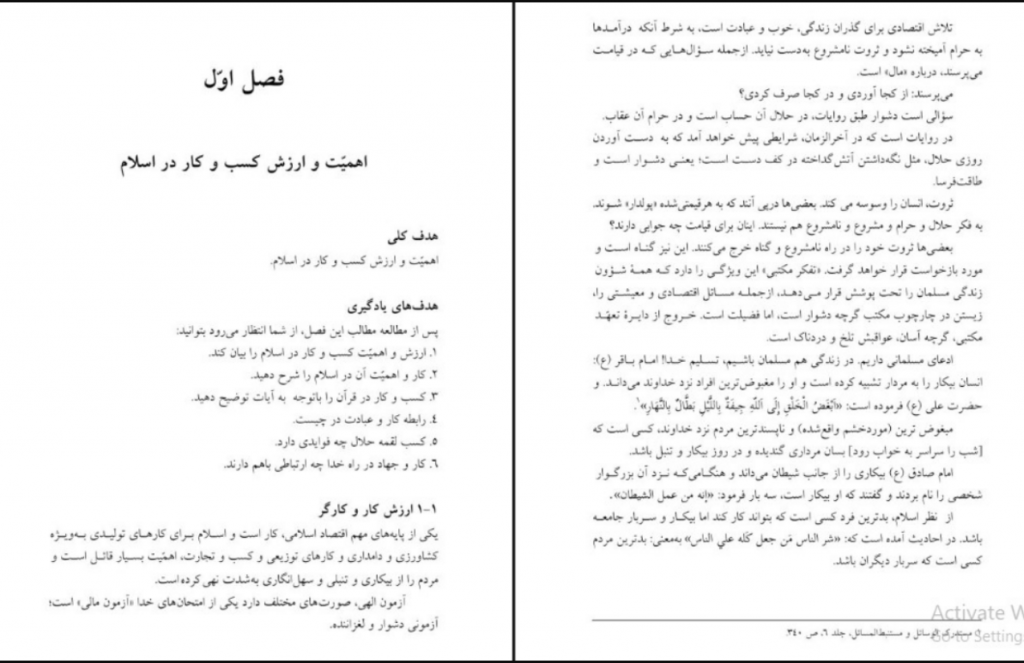 فصل اوّل
اهمیّت و ارزش کسب و کار در اسلام
هدف کلی
اهمیّت و ارزش کسب و کار در اسلام.
هدف‌های یادگیری
پس از مطالعه مطالب این فصل، از شما انتظار می‌رود بتوانید:
۱. ارزش و اهمیّت کسب و کار در اسلام را بیان کند.
۲. کار و اهمیّت آن در اسلام را شرح دهید.
۳. کسب و کار در قرآن را باتوجه به آیات توضیح دهید.
٤. رابطه کار و عبادت در چیست.
٥. کسب لقمه حلال چه فوایدی دارد.
٦. کار و جهاد در راه خدا چه ارتباطی باهم دارند.
۱-۱ ارزش کار و کارگر
یکی از پایه‌های مهم اقتصاد اسلامی، کار است و اسلام برای کارهای تولیدی به‌ویژه
کشاورزی و دامداری و کارهای توزیعی و کسب و تجارت، اهمیّت بسیار قائل است و
مردم را از بیکاری و تنبلی و سهل‌انگاری به‌شدت نهی کرده است.
آزمون الهی، صورت‌های مختلف دارد یکی از امتحان‌های خدا «آزمون مالی» است؛
آزمونی دشوار و لغزاننده.
تلاش اقتصادی برای گذران زندگی، خوب و عبادت است، به شرط آنکه درآمدها
به حرام آمیخته نشود و ثروت نامشروع به‌دست نیاید. ازجمله سؤال‌هایی که در قیامت
می‌پرسند، درباره «مال» است.
می‌پرسند: از کجا آوردی و در کجا صرف کردی؟
سؤالی است دشوار طبق روایات، در حلال آن حساب است و در حرام آن عقاب.
در روایات است که در آخرالزمان، شرایطی پیش خواهد آمد که به دست آوردن
روزی حلال، مثل نگه‌داشتن آتش‌گداخته در کف دست است؛ یعنی دشوار است و
طاقت‌فرسا.
ثروت، انسان را وسوسه می کند. بعضی‌ها درپی آنند که به هرقیمتی‌شده «پولدار» شوند.
به فکر حلال و حرام و مشروع و نامشروع هم نیستند. اینان برای قیامت چه جوابی دارند؟
بعضی‌ها ثروت خود را در راه نامشروع و گناه خرج می‌کنند. این نیز گناه است و
مورد بازخواست قرار خواهد گرفت. «تفکر مکتبی» این ویژگی را دارد که همهٔ شؤون
زندگی مسلمان را تحت پوشش قرار می‌دهد، ازجمله مسائل اقتصادی و معیشتی را،
زیستن در چارچوب مکتب گرچه دشوار است، اما فضیلت است. خروج از دایرهٔ تعهّد
مکتبی، گرچه آسان، عواقبش تلخ و دردناک است.
ادعای مسلمانی داریم. در زندگی هم مسلمان باشیم، تسلیم خدا! امام باقر (ع):
انسان بیکار را به مردار تشبیه کرده است و او را مغبوض‌ترین افراد نزد خداوند می‌داند. و
حضرت علی (ع) فرموده است: «اَبْغَضُ الْخَلْقِ إِلَی اَللّهِ جِیفَةٌ بِاللَّیْلِ بَطَّالٌ بِالنَّهَارِ»۱.
مبغوض ترین (موردخشم واقع‌شده) و ناپسندترین مردم نزد خداوند، کسی است که
[شب را سراسر به خواب رود] بسان مرداری گندیده و در روز بیکار و تنبل باشد.
امام صادق (ع) بیکاری را از جانب شیطان می‌داند و هنگامی‌که نزد آن بزرگوار
شخصی را نام بردند و گفتند که او بیکار است، سه بار فرمود: «إنه من عمل الشیطان».
از نظر اسلام، بدترین فرد کسی است که بتواند کار کند اما بیکار و سربار جامعه
باشد. در احادیث آمده است که: «شر الناس مَن جعل کَله علي الناس» به‌معنی: بدترین مردم
کسی است که سربار دیگران باشد.
۱. مستدرک الوسائل و مستنبط‌المسائل، جلد ٦، ص ۳٤۰.
Activate W
Go to Setting